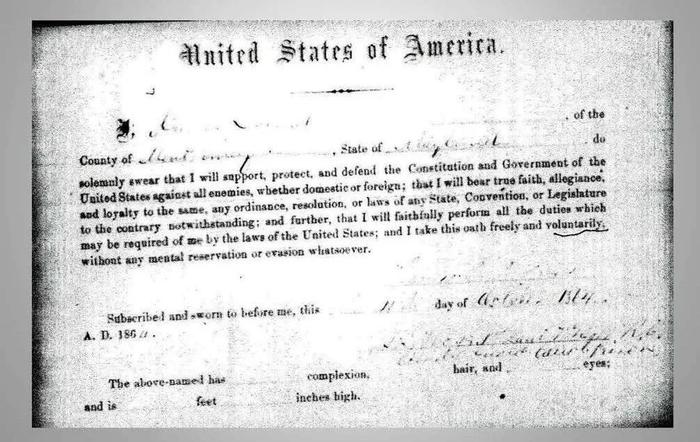 United States of America.
I, of the
County of Montgomery, State of Maryland do
solemnly swear that I will support, protect, and defend the Constitution and Government of the
United States against all enemies, whether domestic or foreign; that I will bear true faith, allegiance,
and loyalty to the same, any ordinance, resolution, or laws of any State, Convention, or Legislature
to the contrary notwithstanding; and further, that I will faithfully perform all the duties which
may be required of me by the laws of the United States; and I take this oath freely and voluntarily,
without any mental reservation or evasion whatsoever.
Subscribed and sworn to before me, this day of
A. D. 186
The above-named has complexion, hair, and eyes;
and is feet inches high.